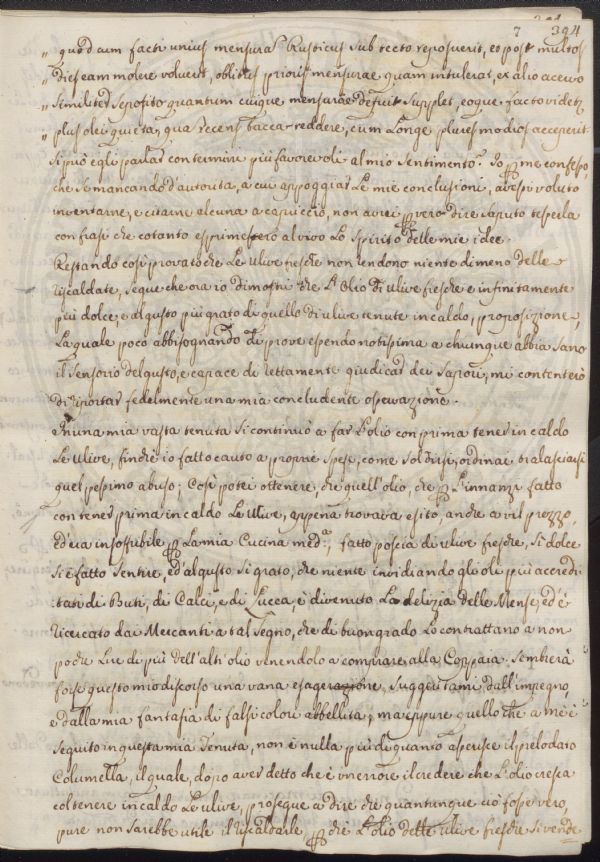 7 394
„ quod cum facti unius mensuram Rusticus sub tecto reposuerit, et post multos
„ dies eam molere voluerit, oblitus prioris mensurae quam intulerat, ex alio acervo
„ similiter seposito quantum cuique mensurae defuit supplet, eoque facto videtur
„ plus olei quieta, quam recens bacca reddere, cum longe plures modios acceperit.
Si può egli parlar con termini più favorevoli al mio sentimento? Io per me confesso,
che se mancando d'autorità, a cui appoggiar le mie conclusioni, avessi voluto
inventarne, e citarne alcuna a capriccio, non avrei per vero dire saputo tesserla
con frasi che cotanto esprimessero al vivo lo spirito delle mie idee.
Restando così provato che le Ulive fresche non rendono niente di meno delle
riscaldate, segue che ora io dimostri che l'Olio di ulive fresche è infinitamente
più dolce, e al gusto più grato di quello di ulive tenute in caldo, proposizione,
la quale poco abbisognando di prove essendo notissima a chiunque abbia sano
il sensorio del gusto, e capace di rettamente giudicar dei sapori, mi contenterò
di riportar fedelmente una mia concludente osservazione.
In una mia vasta tenuta si continuò a far l'olio con prima tener in caldo
le Ulive, finchè io fatto cauto a proprie spese, come suol dirsi, ordinai tralasciarsi
quel pessimo abuso; Così potei ottenere, che quell'olio, che per l'innanzi fatto
con tener prima in caldo le Ulive, appena trovava esito, anche a vil prezzo,
ed era insoffribile per la mia Cucina med.ª, fatto poscia di ulive fresche, sì dolce
si è fatto sentire, ed al gusto sì grato, che niente invidiando gli olj più accredi-
:tati di Buti, di Calci, e di Lucca, è divenuto la delizia delle Mense, ed è
ricercato dai Mercanti a tal segno, che di buon grado lo contrattano a non
poche Lire di più dell'altr'olio venendolo a comprare alla Coppaia. Sembrerà
forse questo mio discorso una vana esagerazione, suggeritami dall'impegno,
e dalla mia fantasia di falsi colori abbellita; ma eppure quello che a me è
seguito in questa mia Tenuta, non è nulla più di quanto asserisce il prelodato
Columella, il quale, dopo aver detto che è un errore il credere che l'olio cresca
col tenere in caldo le ulive, prosegue a dire che quantunque ciò fosse vero,
pure non sarebbe utile il riscaldarle, perchè l'olio delle ulive fresche si vende